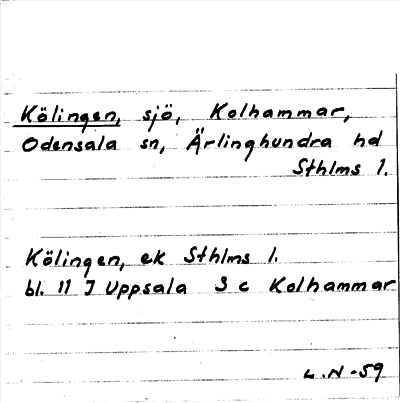 Kölingen, sjö, Kolhammar,
Odensala sn, Ärlinghundra hd
Sthlms l.
Kölingen, ek Sthlms l.
bl. 11 I Uppsala S c Kolhammar
L.N-59